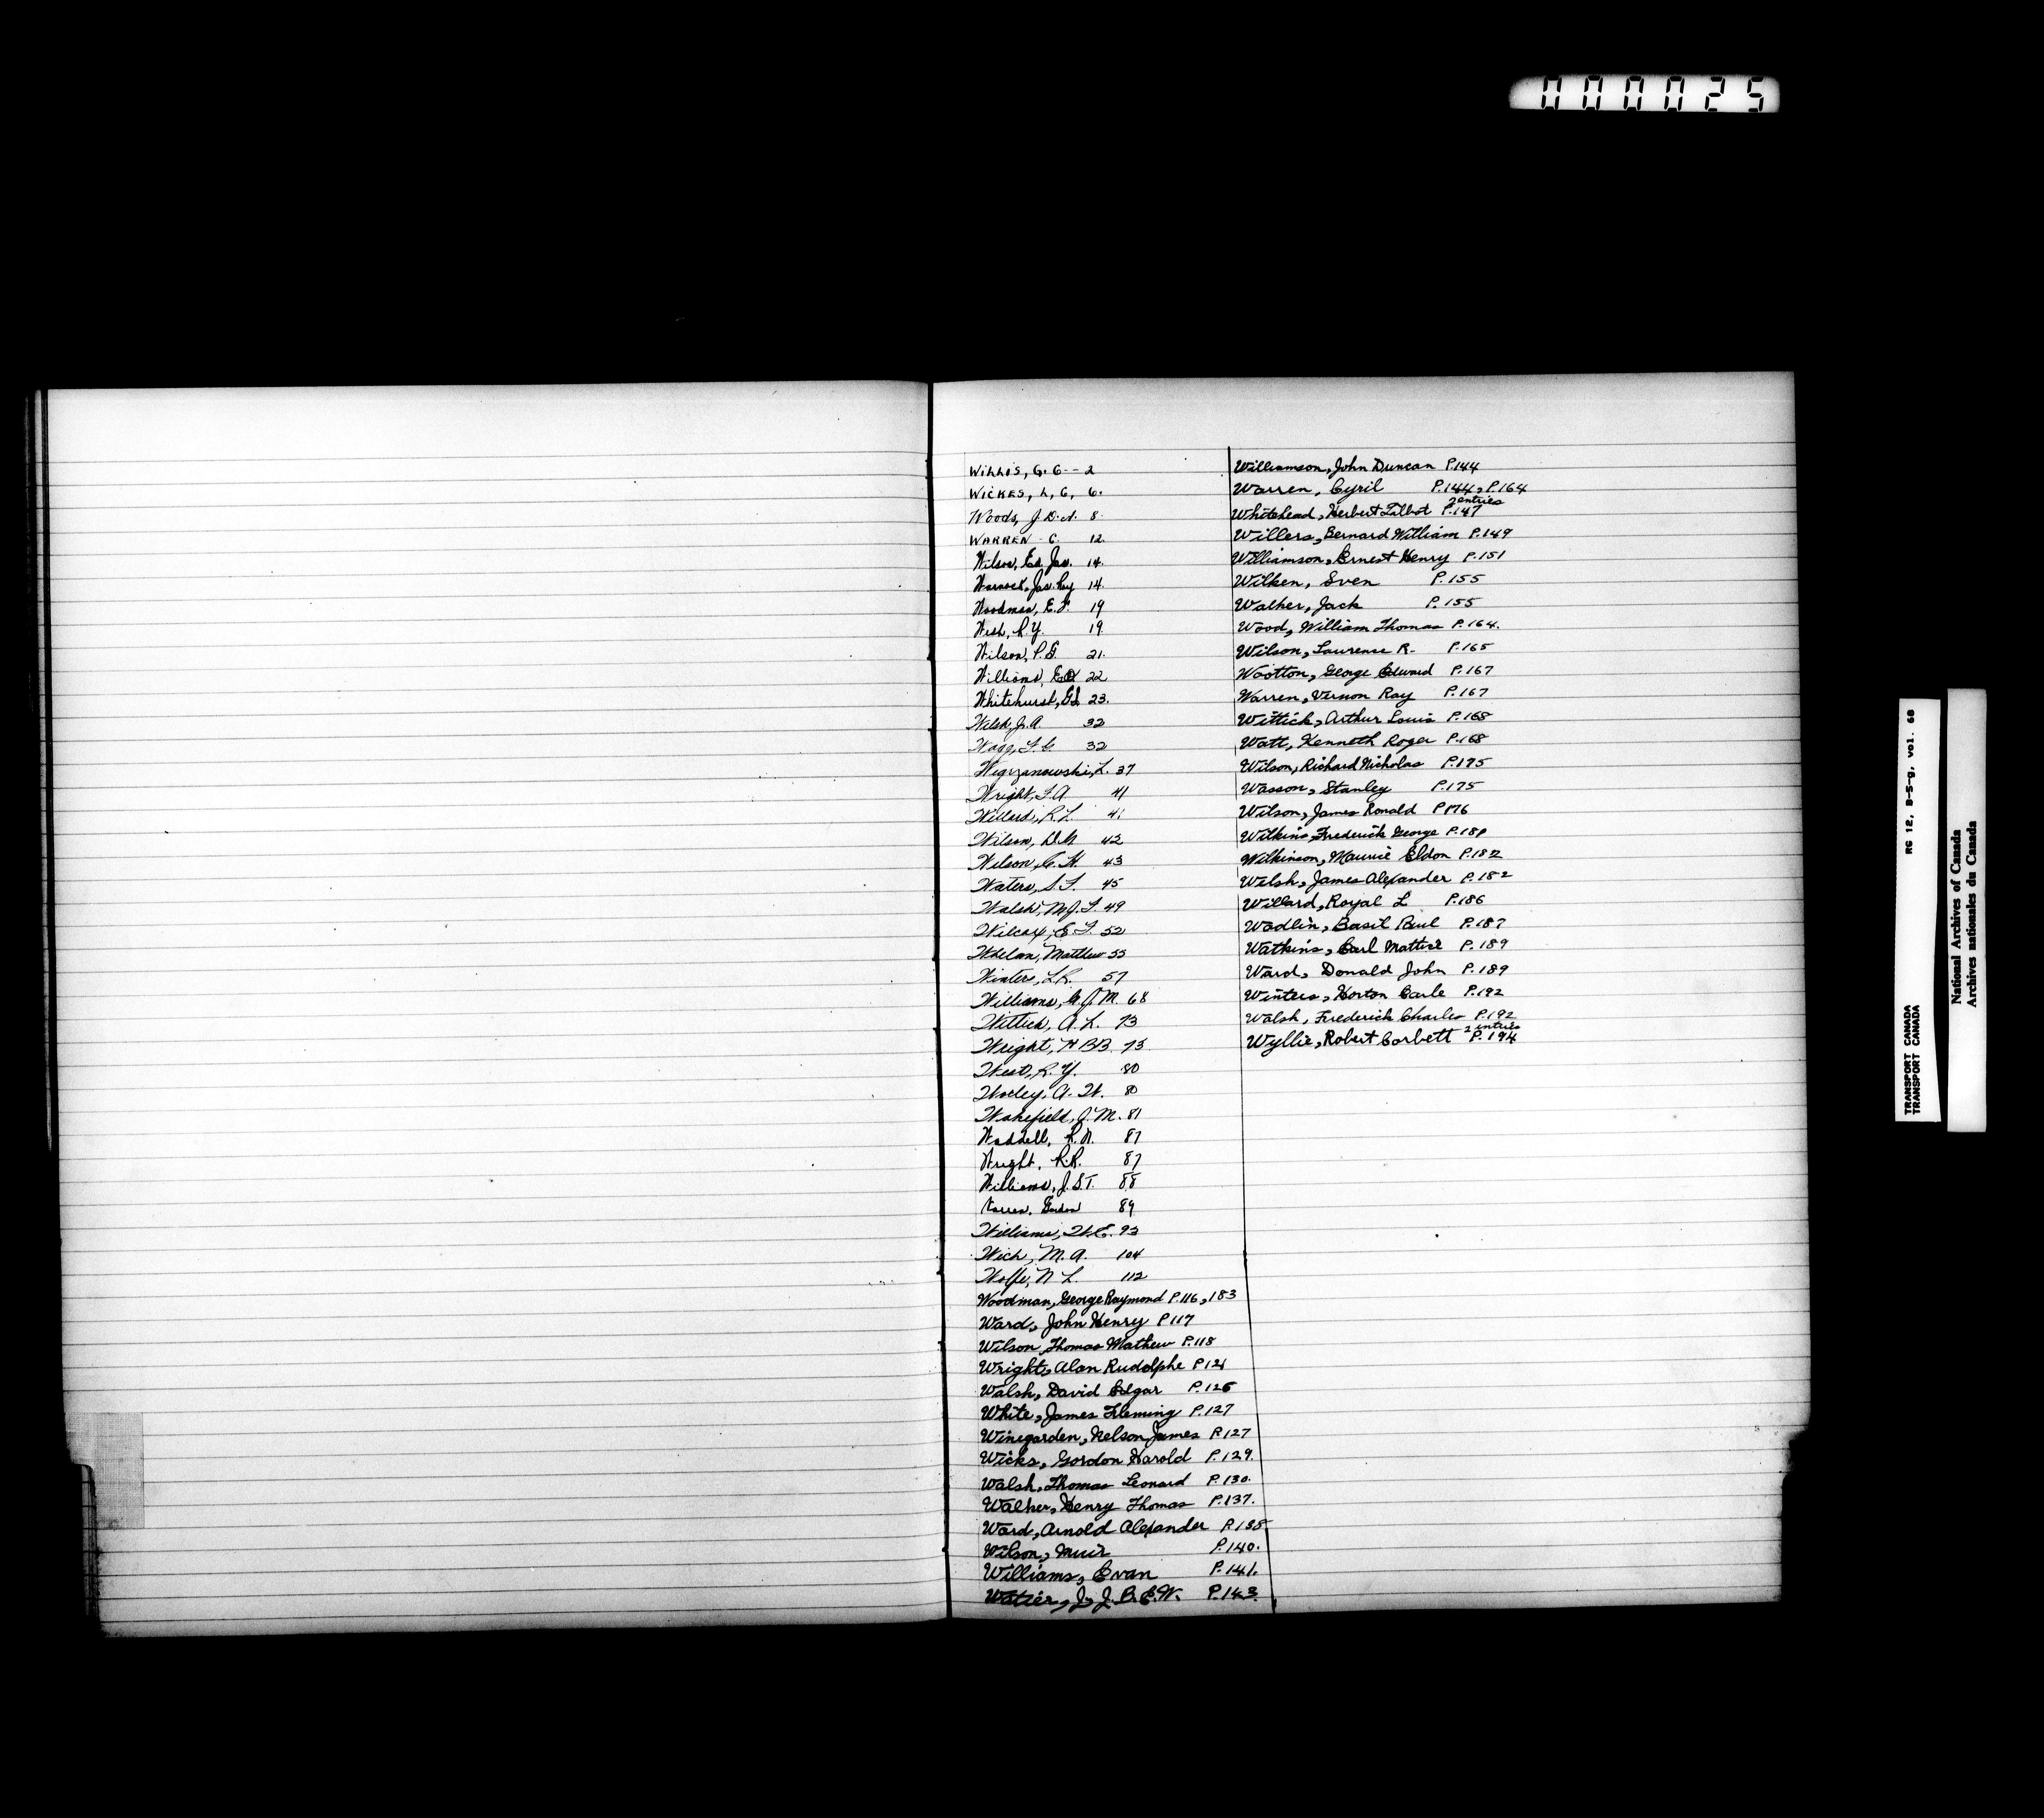 000025
WILLIS, G. C -- 2
WICKES, L, C, 6.
Woods, J. D. A. 8
WARREN C. 12.
Wilson, Ed. Jas. 14.
Warnock, Jas. Ray 14
Woodman, E. F. 19
West, R. Y. 19
Wilson, P. G. 21.
Williams, 22
Whitehurst, 23.
Welsh, J. A. 32
32
Wegrzanowski, L. 37
Wright, F. A 41
Willard, R. L. 41
Wilson, D. N 42
Wilson, C. H. 43
Waters, S. F. 45
Walsh, M. J. F. 49
Wilcox, E. F. 52
Whelan, Matthew 55
Winters, L R. 57
Williams, G. J. M. 68
Wittick, A. L. 73
Wright, H B B. 75
West, R. Y. 80
Worley, A. W. 80
Wakefield, J. M. 81
Waddell, R. N. 87
Wright, R. R. 87
Williams, J. S. T. 88
Warren, Gordon 89
Williams, W. E. 93
Wich, M. A. 104
Wolfe, N L. 112
Woodman, George Raymond P. 116, 183
Ward, John Henry P 117
Wilson, Thomas Mathew P. 118
Wright, Alan Rudolphe P 121
Walsh, David Edgar P. 126
White, James Fleming P. 127
Winegarden, Nelson James P. 127
Wicks, Gordon Harold P. 129.
Walsh, Thomas Leonard P. 130.
Walker, Henry Thomas P. 137.
Ward, Arnold Alexander P. 138
Wilson, Muir P. 140.
Williams, Evan P. 141.
Watier, J. J. B. E. W. P. 143.
Williamson, John Duncan P. 144
Warren, Cyril P. 144, P. 164
2 entries
Whitehead, Herbert Talbot P. 147
Willers, Bernard William P. 149
Williamson, Ernest Henry P. 151
Wilken, Sven P. 155
Walker, Jack P. 155
Wood, William Thomas P. 164.
Wilson, Laurence R. P. 165
Wootton, George Edward P. 167
Warren, Vernon Ray P. 167
Wittick, Arthur Louis P. 168
Watt, Kenneth Roger P. 168
Wilson, Richard Nicholas P. 175
Wasson, Stanley P. 175
Wilson, James Ronald P 176
Wilkins, Frederick George P. 180
Wilkinson, Maurice Eldon P. 182
Welsh, James Alexander P. 182
Willard, Royal L P. 186
Wadlin, Basil Paul P. 187
Watkins, Carl Mattice P. 189
Ward, Donald John P. 189
Winters, Horton Carle P. 192
Walsh, Frederick Charles P. 192
2 entries
Wyllie, Robert Corbett P. 194
TRANSPORT CANADA RG 12, B-5-g, vol. 68
TRANSPORT CANADA
National Archives of Canada
Archives nationales du Canada